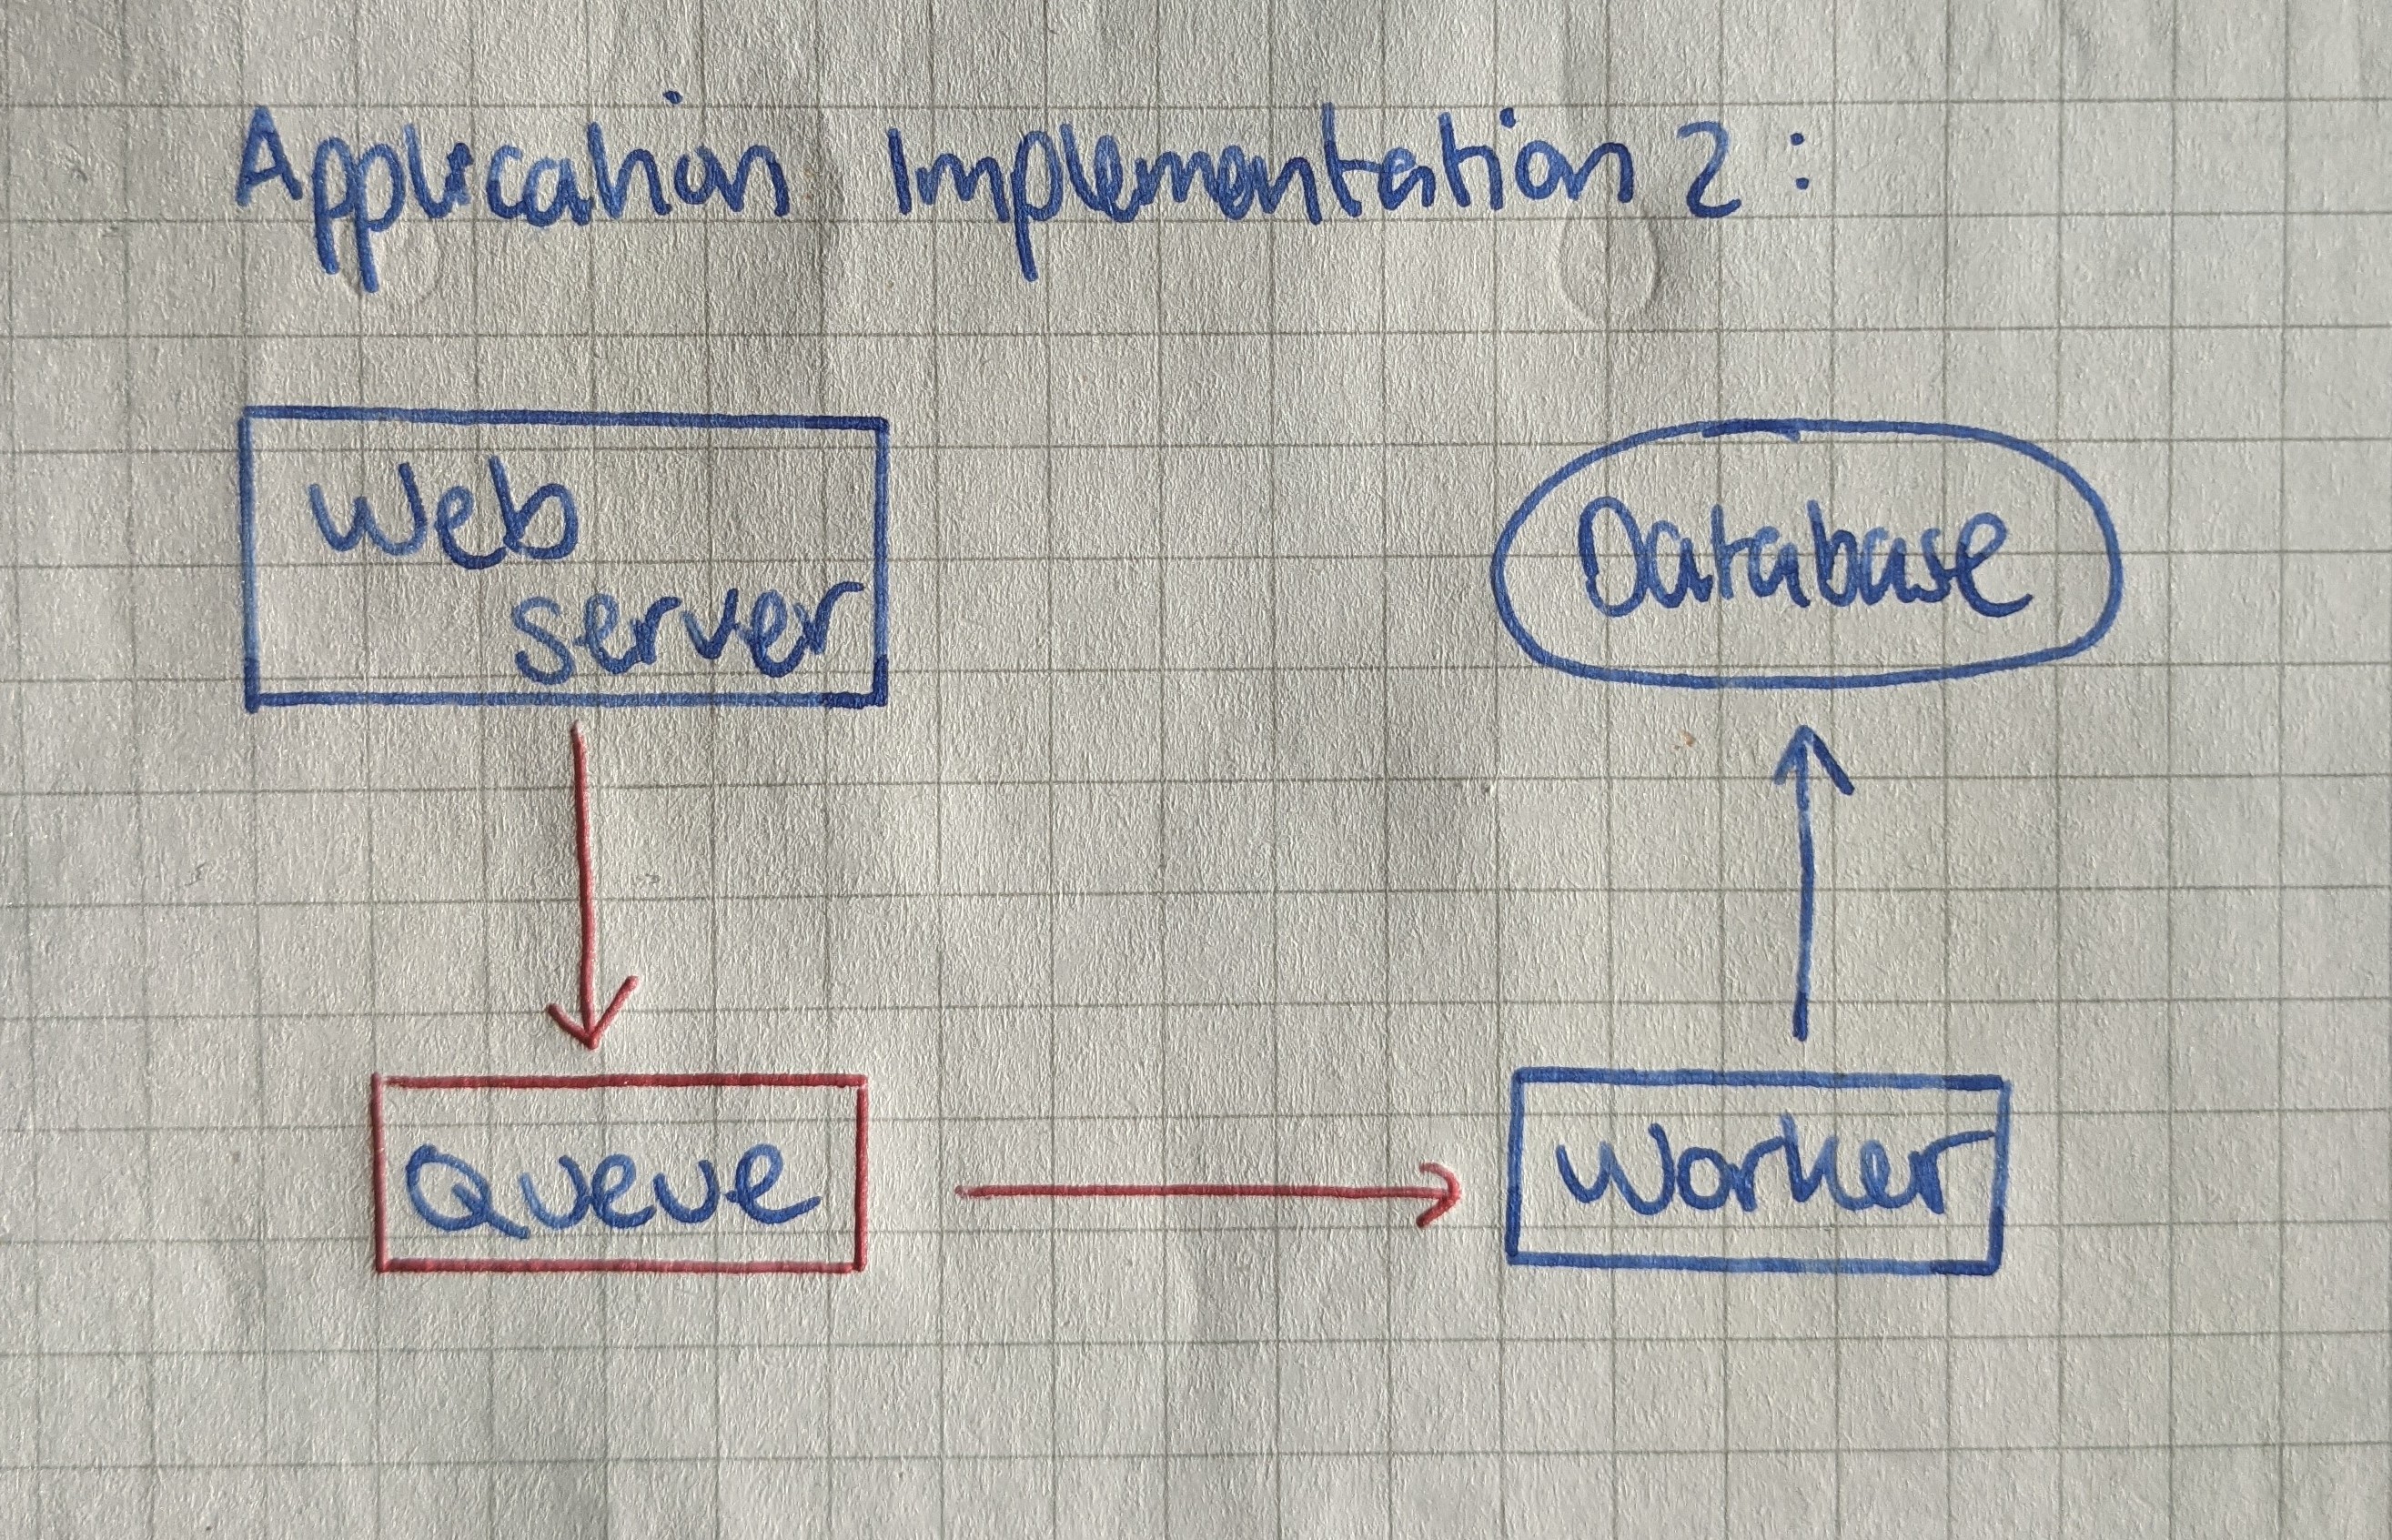 Application Implementation 2:
Web
server
Database
Queue
Worker